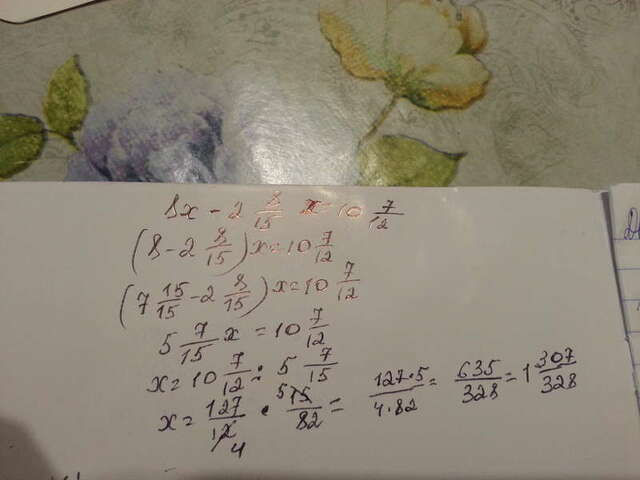 8x - 2 8/15 x = 10 7/12
(8 - 2 8/15)x = 10 7/12
(7 15/15 - 2 8/15)x = 10 7/12
5 7/15 x = 10 7/12
x = 10 7/12 : 5 7/15
x = 127/12 4 • 5 15/82 = 127•5/4•82 = 635/328 = 1 307/328